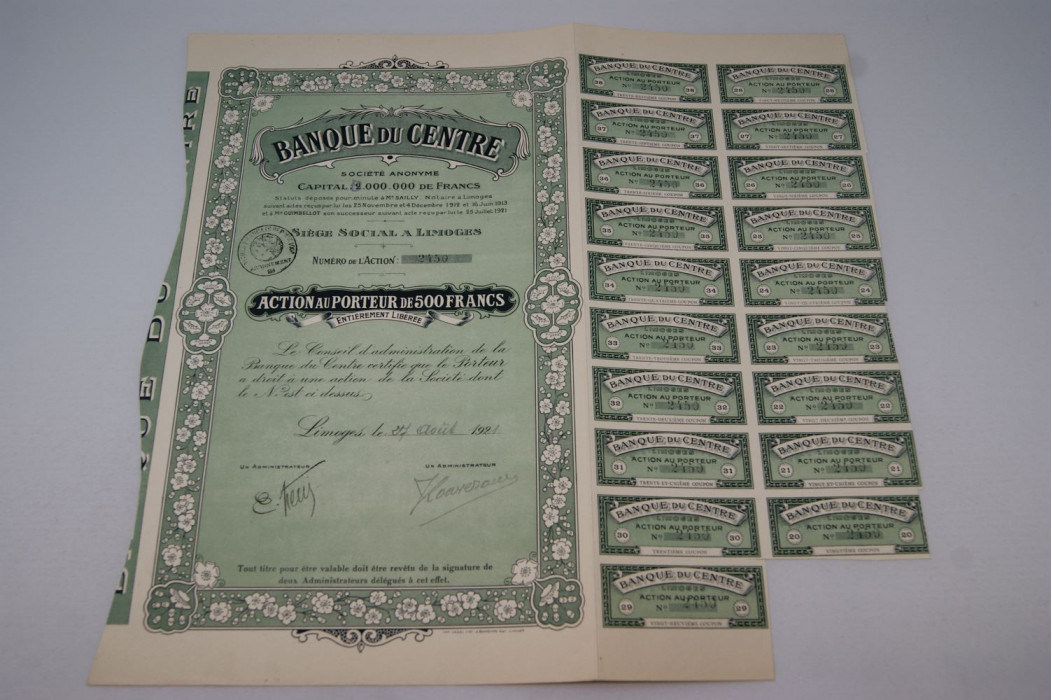 BANQUE DU CENTRE
SOCIÉTÉ ANONYME
CAPITAL 2.000.000 DE FRANCS
Statuts déposés pour minute à Me SAILLY, Notaire à Limoges
suivant actes reçus par lui les 25 Novembre et 4 Décembre 1912 et 16 Juin 1913
et à Me GOMBELLOT son successeur suivant acte reçu par lui le 23 Juillet 1921
SIÈGE SOCIAL A LIMOGES
NUMÉRO DE L'ACTION: 2450
ACTION AU PORTEUR DE 500 FRANCS
ENTIÈREMENT LIBÉRÉE
Le Conseil d'administration de la
Banque du Centre certifie que le Porteur
a droit à une action de la Société dont
le No est ci dessus
Limoges, le 27 Août 1921
UN ADMINISTRATEUR UN ADMINISTRATEUR
Tout titre pour être valable doit être revêtu de la signature de
deux Administrateurs délégués à cet effet.
BANQUE DU CENTRE
LIMOGES
ACTION AU PORTEUR
38 No 2450 38
TRENTE-HUITIÈME COUPON
BANQUE DU CENTRE
LIMOGES
ACTION AU PORTEUR
28 No 2450 28
VINGT-HUITIÈME COUPON
BANQUE DU CENTRE
LIMOGES
ACTION AU PORTEUR
37 No 2450 37
TRENTE-SEPTIÈME COUPON
BANQUE DU CENTRE
LIMOGES
ACTION AU PORTEUR
27 No 2450 27
VINGT-SEPTIÈME COUPON
BANQUE DU CENTRE
LIMOGES
ACTION AU PORTEUR
36 No 2450 36
TRENTE-SIXIÈME COUPON
BANQUE DU CENTRE
LIMOGES
ACTION AU PORTEUR
26 No 2450 26
VINGT-SIXIÈME COUPON
BANQUE DU CENTRE
LIMOGES
ACTION AU PORTEUR
35 No 2450 35
TRENTE-CINQUIÈME COUPON
BANQUE DU CENTRE
LIMOGES
ACTION AU PORTEUR
25 No 2450 25
VINGT-CINQUIÈME COUPON
BANQUE DU CENTRE
LIMOGES
ACTION AU PORTEUR
34 No 2450 34
TRENTE-QUATRIÈME COUPON
BANQUE DU CENTRE
LIMOGES
ACTION AU PORTEUR
24 No 2450 24
VINGT-QUATRIÈME COUPON
BANQUE DU CENTRE
LIMOGES
ACTION AU PORTEUR
33 No 2450 33
TRENTE-TROISIÈME COUPON
BANQUE DU CENTRE
LIMOGES
ACTION AU PORTEUR
23 No 2450 23
VINGT-TROISIÈME COUPON
BANQUE DU CENTRE
LIMOGES
ACTION AU PORTEUR
32 No 2450 32
TRENTE-DEUXIÈME COUPON
BANQUE DU CENTRE
LIMOGES
ACTION AU PORTEUR
22 No 2450 22
VINGT-DEUXIÈME COUPON
BANQUE DU CENTRE
LIMOGES
ACTION AU PORTEUR
31 No 2450 31
TRENTE-ET-UNIÈME COUPON
BANQUE DU CENTRE
LIMOGES
ACTION AU PORTEUR
21 No 2450 21
VINGT ET UNIÈME COUPON
BANQUE DU CENTRE
LIMOGES
ACTION AU PORTEUR
30 No 2450 30
TRENTIÈME COUPON
BANQUE DU CENTRE
LIMOGES
ACTION AU PORTEUR
20 No 2450 20
VINGTIÈME COUPON
BANQUE DU CENTRE
LIMOGES
ACTION AU PORTEUR
29 No 2450 29
VINGT-NEUVIÈME COUPON